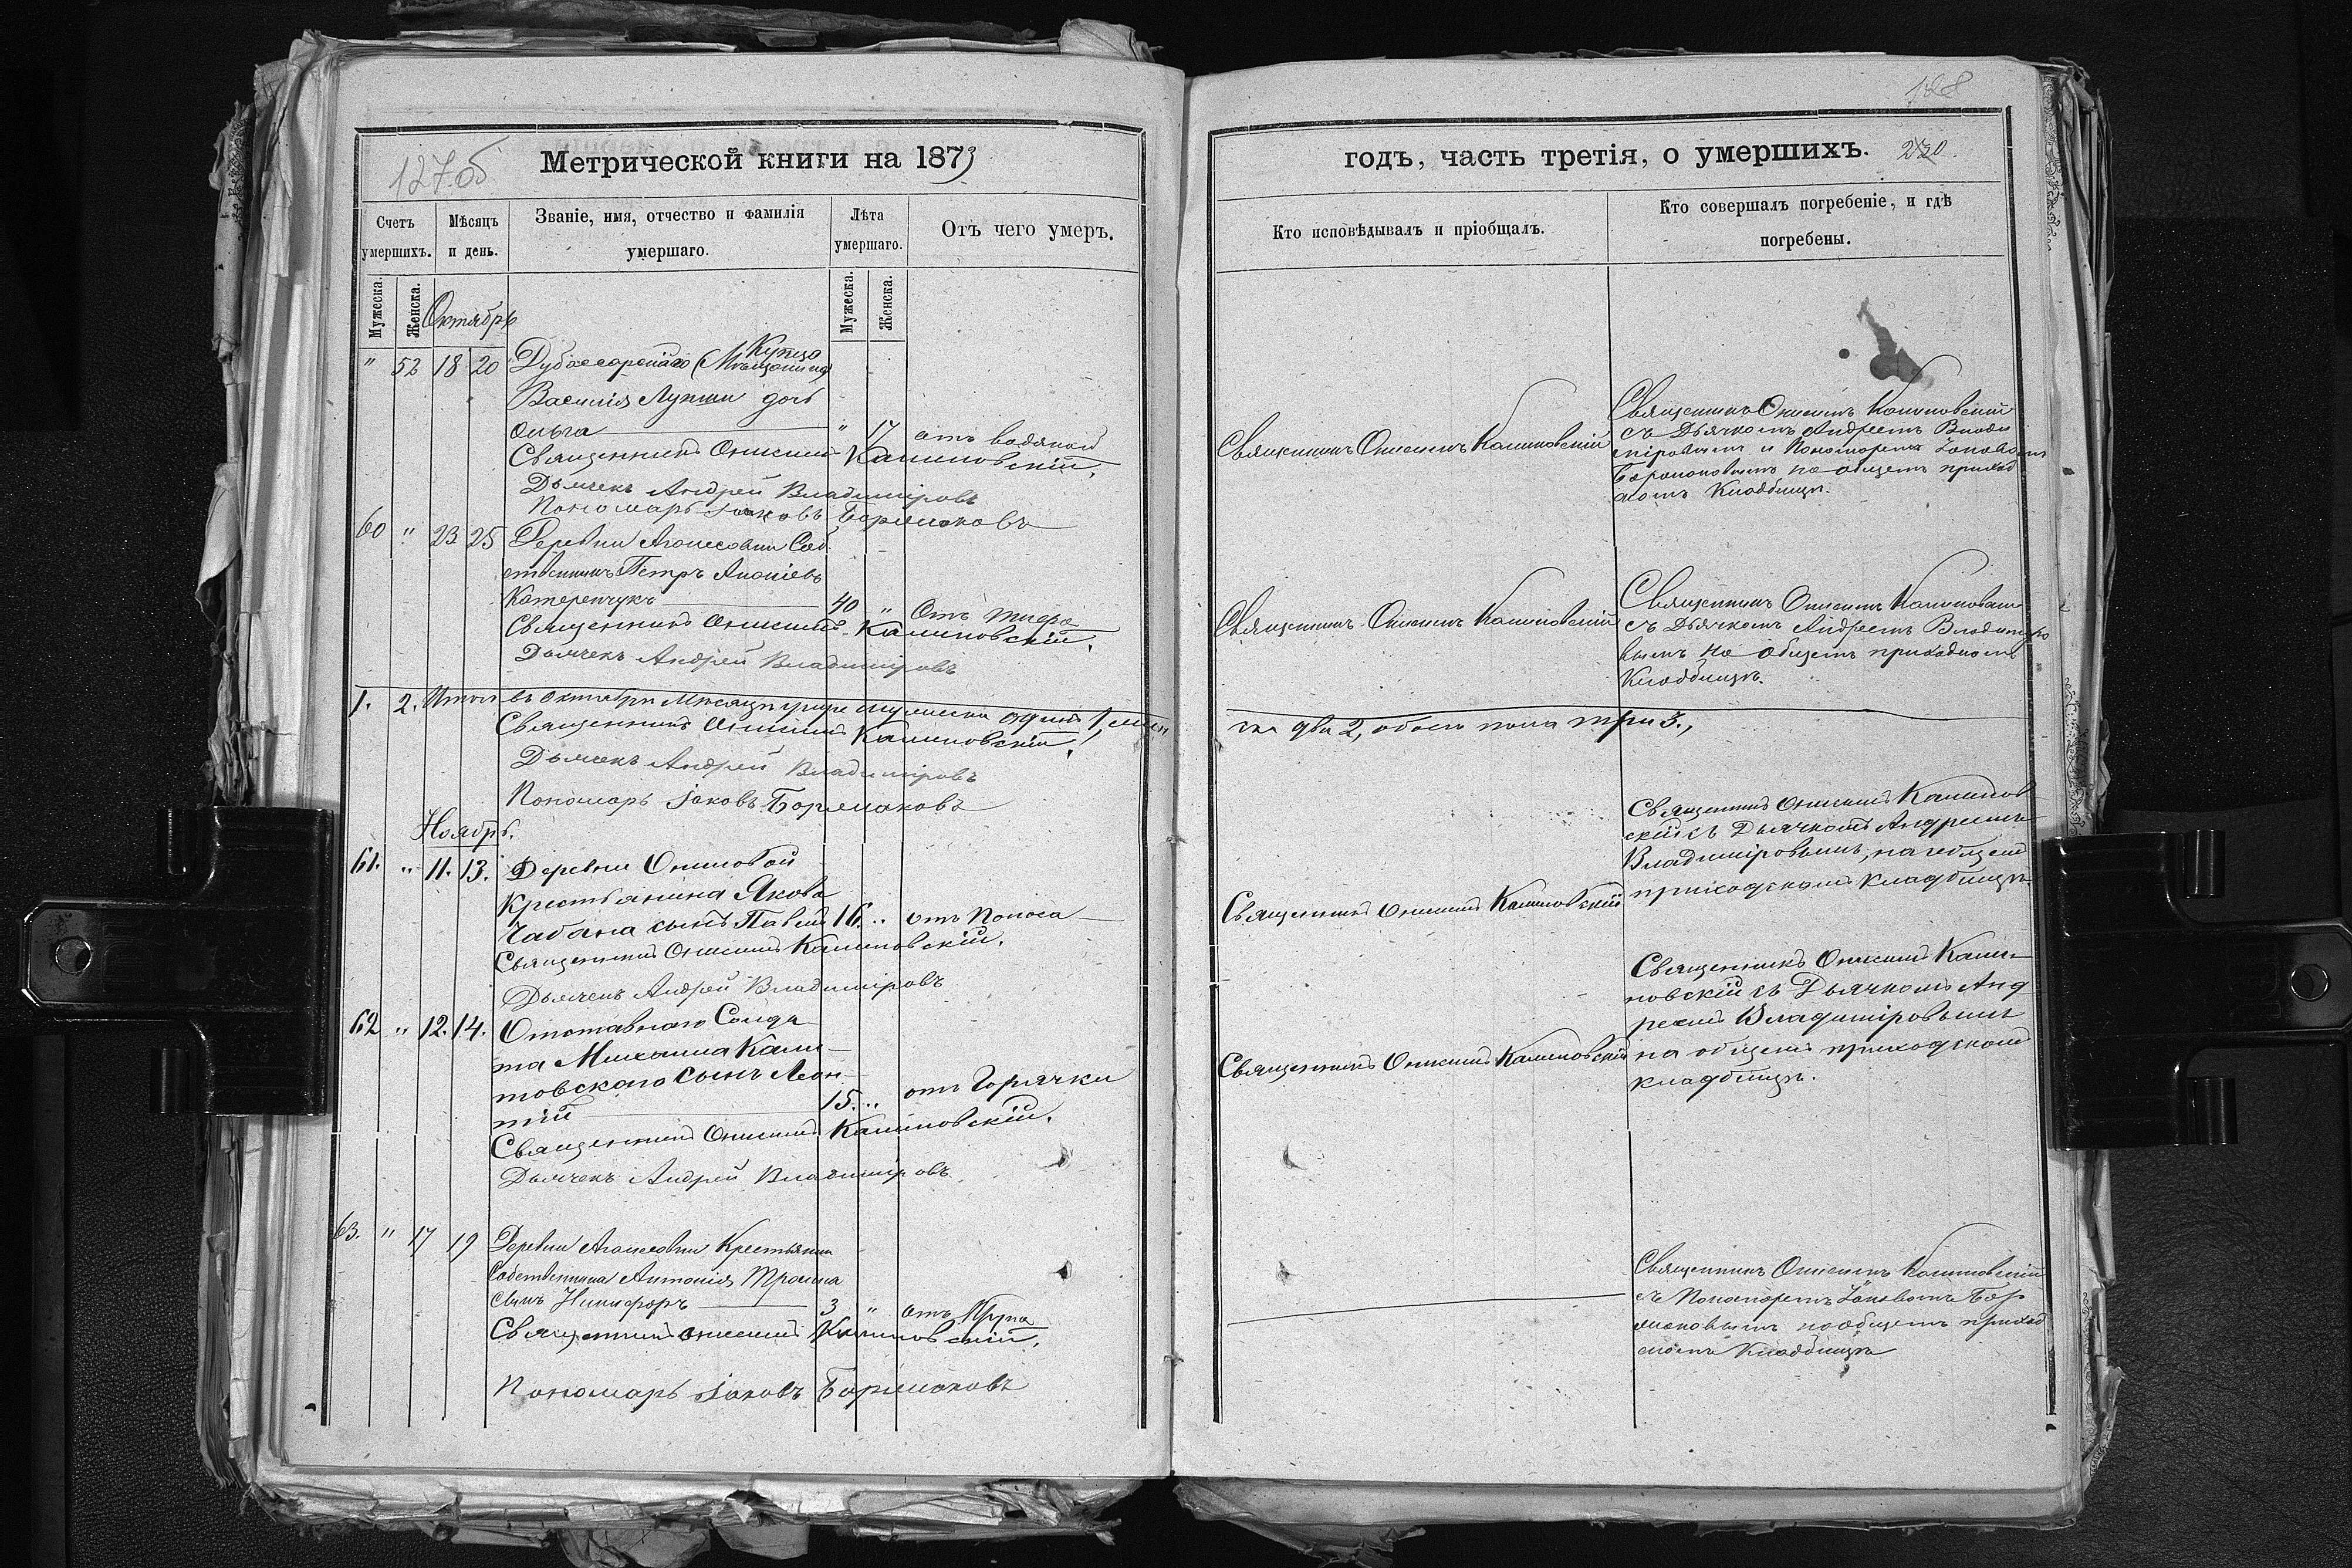 127.об
Метрической книги на 1873
Счетъ умершихъ.
Мѣсяцъ и день.
Званіе, имя, отчество и фамилія умершаго.
Лѣта умершаго.
Отъ чего умеръ.
Мужеска.
Женска.
Мужеска.
Женска.
Октябрь
Купца
" 52 18 20 Дубоссарскаго (Мѣщанина)
Василія Лупши дочь
Ольга " 17 отъ водяной
Священникъ Онисимъ Калиновскій.
Дьячекъ Андрей Владиміровъ
Пономарь Іаковъ
60 " 23 25 Деревни
ственникъ Петръ
Катеренчукъ 40 " Отъ
Священникъ Онисимъ Калиновскій.
Дьячекъ Андрей Владиміровъ
1. 2. Итого въ Октябрѣ Мѣсяцѣ умре мужеска одинъ 1, жен
Священникъ Онисимъ Калиновскій.
Дьячекъ Андрей Владиміровъ
Пономарь Іаковъ
Ноябрь.
61. " 11. 13. Деревни
Крестьянина Якова
Чабана сынъ Павелъ 16. " отъ Поноса
Священникъ Онисимъ Калиновскій.
Дьячекъ Андрей Владиміровъ
62 " 12. 14. Отставнаго Солда
та Михаила Кали
товскаго сынъ Леон
тій 15. " отъ Горячки
Священникъ Онисимъ Калиновскій.
Дьячекъ Андрей Владиміровъ
63. " 17 19 Деревни Крестьянина
Собственника Антонія
сынъ Никифоръ 3 " отъ Крупа
Священникъ Онисимъ Калиновскій.
Пономарь Іаковъ
128
годъ, часть третія, о умершихъ. 230.
Кто исповѣдывалъ и пріобщалъ.
Кто совершалъ погребеніе, и гдѣ погребены.
Священникъ Онисимъ Калиновскій
Священникъ Онисимъ Калиновскій
съ Дьячкомъ Андреемъ Влади
міровымъ и Пономаремъ Іаковомъ
на общемъ приход
скомъ Кладбищѣ.
Священникъ Онисимъ Калиновскій
Священникъ Онисимъ Калиновскій
съ Дьячкомъ Андреемъ Владиміро
вымъ на общемъ приходскомъ
Кладбищѣ.
ска два 2, обоего пола три 3.,
Священникъ Онисимъ Калинов
скій съ Дьячкомъ Андреемъ
Владиміровымъ, на общемъ
приходскомъ кладбищѣ.
Священникъ Онисимъ Калиновскій
Священникъ Онисимъ Кали
новскій съ Дьячкомъ Анд
реемъ Владиміровымъ
на общемъ приходскомъ
кладбищѣ.
Священникъ Онисимъ Калиновскій
Священникъ Онисимъ Калиновскій
съ Пономаремъ Іаковомъ
на общемъ приход
скомъ Кладбищѣ